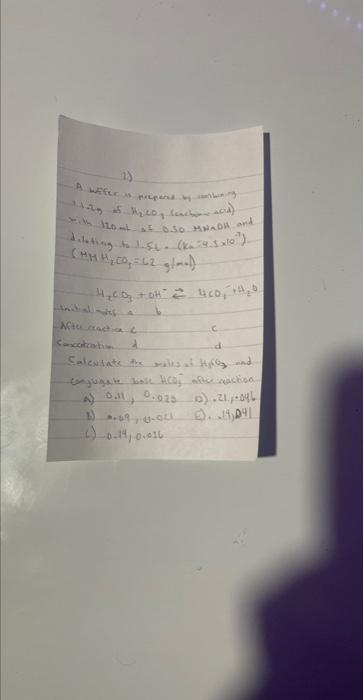 2)
A buffer is prepared by combining
of H₂CO₃ (carbonic acid)
with 120 mL of 0.50 M NaOH and
diluting to 1.5L. (Ka =
(MM H₂CO₃ = 62 g/mol)
H₂CO₃ + OH⁻ ⇄ HCO₃⁻ + H₂O
Initial moles a b
After reaction c c
Concentration d d
Calculate the moles of H₂CO₃ and
conjugate base HCO₃⁻ after reaction
A) 0.11, D) .21,
B) E). .19,
C) 0.14,